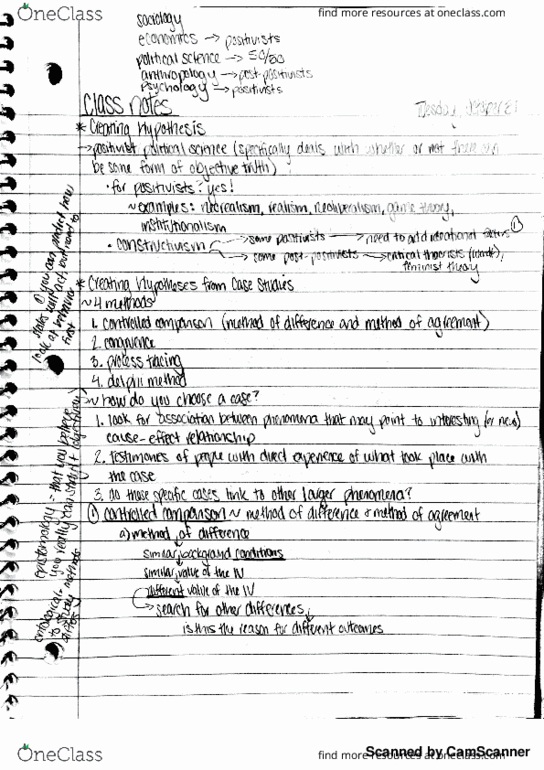 OneClass
find more resources at oneclass.com
sociology
economics → positivists
political science → 50/50
anthropology → post-positivists
psychology → positivists
Class Notes
Tuesday,
* Creating Hypothesis
→ positivist political science (specifically deals with whether or not there can
be some form of objective truth)
· for positivists? yes!
~ examples: neorealism, realism, neoliberalism, game theory,
institutionalism
· constructivism → some positivists → need to add ideational factors ①
→ some post-positivists → critical theorists
feminist theory
* Creating Hypotheses from Case Studies
~ 4 methods
1. controlled comparison (method of difference and method of agreement)
2. congruence
3. process tracing
4. delphi method
~ how do you choose a case?
1. look for association between phenomena that may point to interesting (or new)
cause-effect relationship
2. testimonies of people with direct experience of what took place with
the case
3. do those specific cases link to other larger phenomena?
① controlled comparison ~ method of difference & method of agreement
a) method of difference
similar background conditions
similar value of the IV
different value of the IV
→ search for other differences
is this the reason for different outcomes
① you can predict how
states will act, but need to
look at
first
epistemology = that you believe
you really can start objectively
ontological =
to study methods
OneClass
find more resources at oneclass.com
Scanned by CamScanner